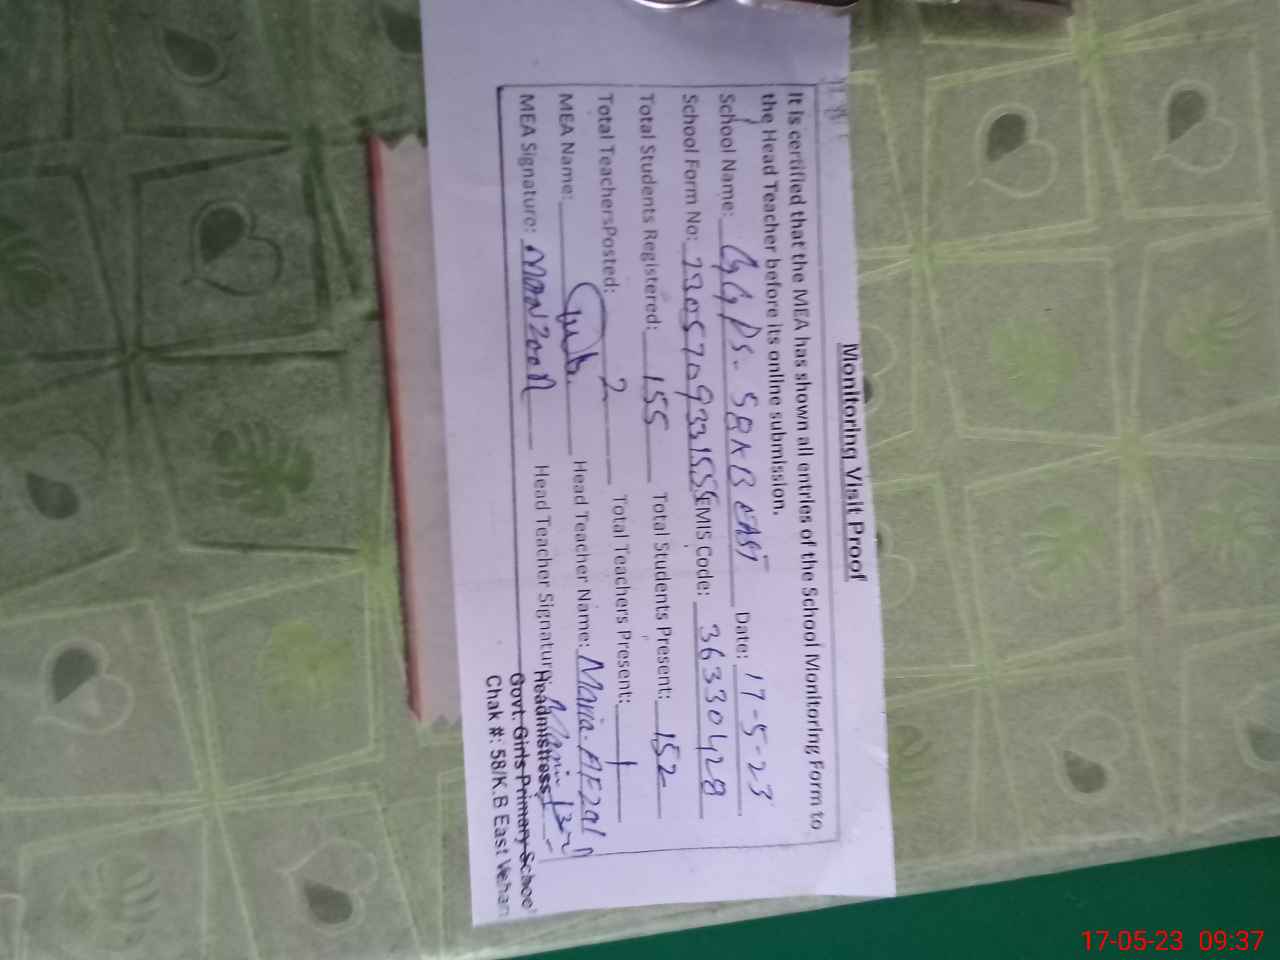 Monitoring Visit Proof
It is certified that the MEA has shown all entries of the School Monitoring Form to
the Head Teacher before its online submission.
School Name: GGPS. 58KB EAST Date: 17-5-23
School Form No: EMIS Code: 36330428
Total Students Registered: 155 Total Students Present: 152
Total TeachersPosted: 2 Total Teachers Present: 1
MEA Name: Head Teacher Name: Maria Afzal
MEA Signature: MANZOOR Head Teacher Signature:
Headmistress
Govt. Girls Primary School
Chak #: 58/K.B East Vehari
17-05-23 09:37